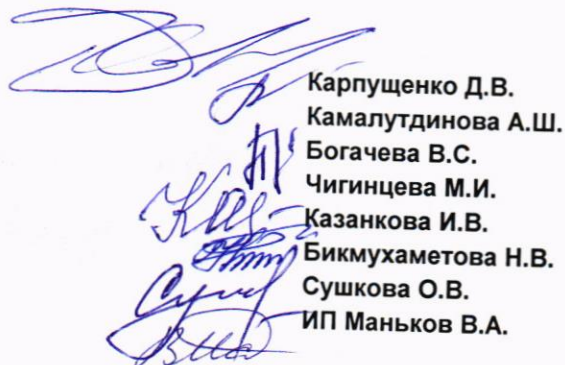 Карпущенко Д.В.
Камалутдинова А.Ш.
Богачева В.С.
Чигинцева М.И.
Казанкова И.В.
Бикмухаметова Н.В.
Сушкова О.В.
ИП Маньков В.А.